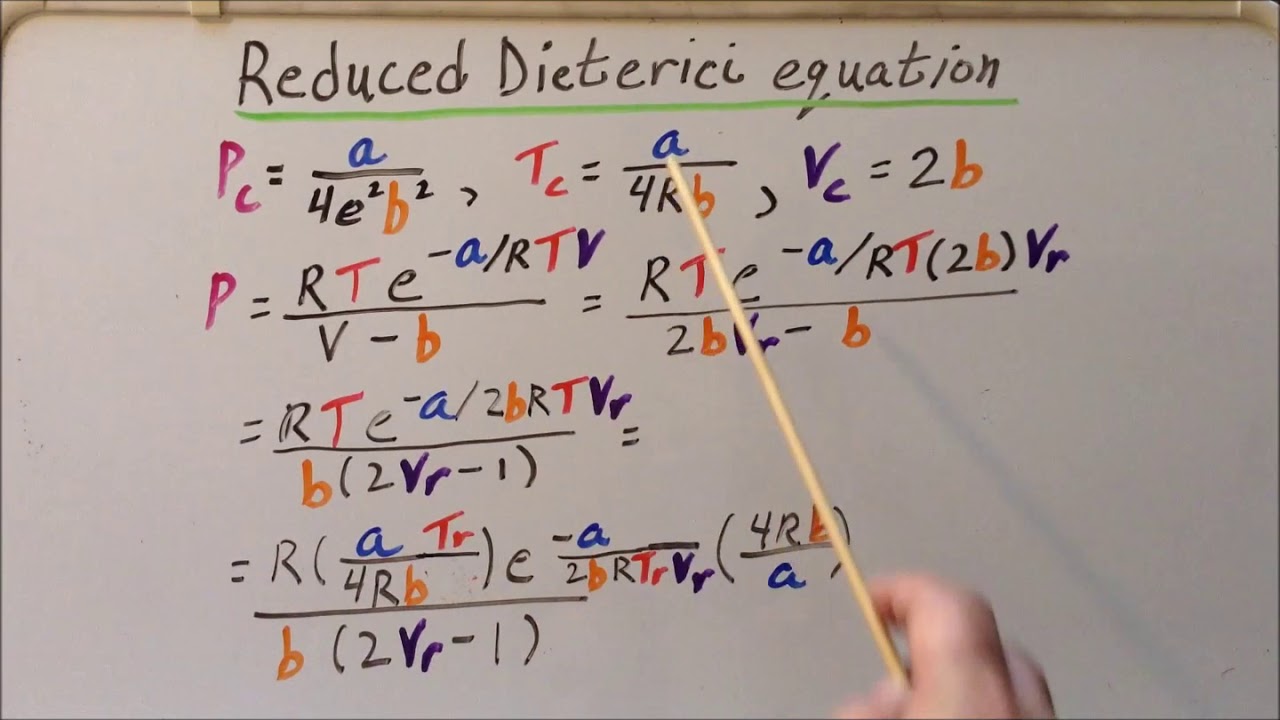 Reduced Dieterici equation
P_c = a / 4e²b² , T_c = a / 4Rb , V_c = 2b
P = RTe^(-a/RTV) / V - b = RTe^(-a/RT(2b)V_r) / 2bV_r - b
= RTe^(-a/2bRTV_r) / b(2V_r - 1) =
= R(a T_r / 4Rb) e^(-a / 2bRT_rV_r (4Rb / a)) / b(2V_r - 1)